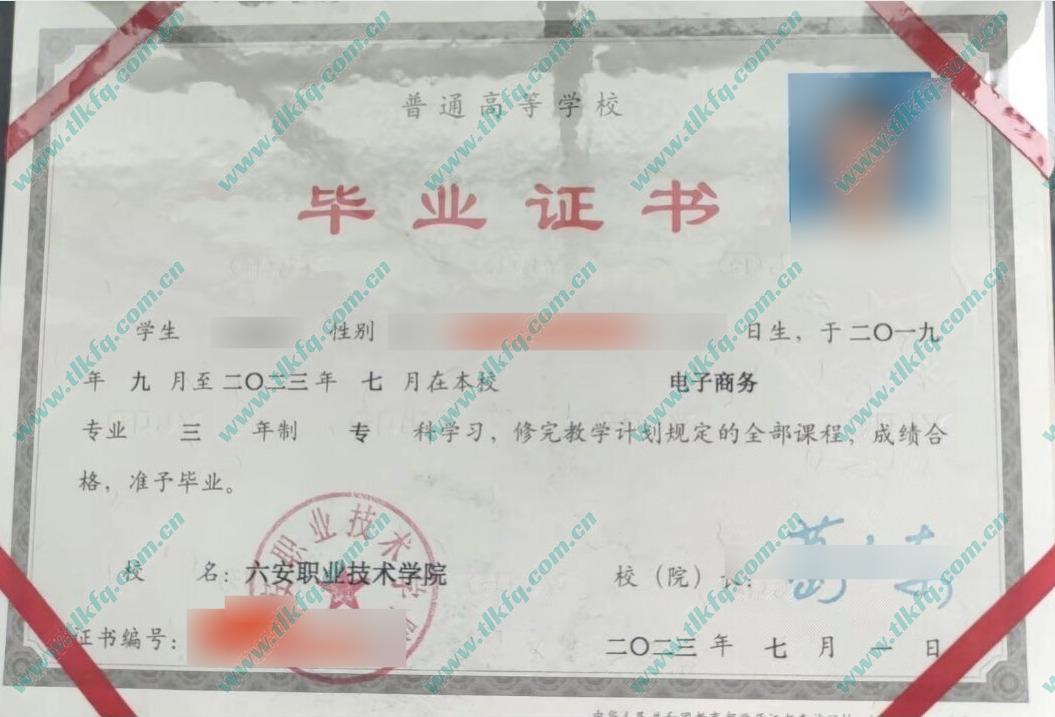 普通高等学校
毕业证书
学生 性别 日生，于二〇一九
年 九 月至二〇二三年 七 月在本校 电子商务
专业 三 年制 专 科学习，修完教学计划规定的全部课程，成绩合
格，准予毕业。
校 名：六安职业技术学院
校（院）
证书编号：
二〇二三年 七 月 一 日
www.tlkfq.com.cn